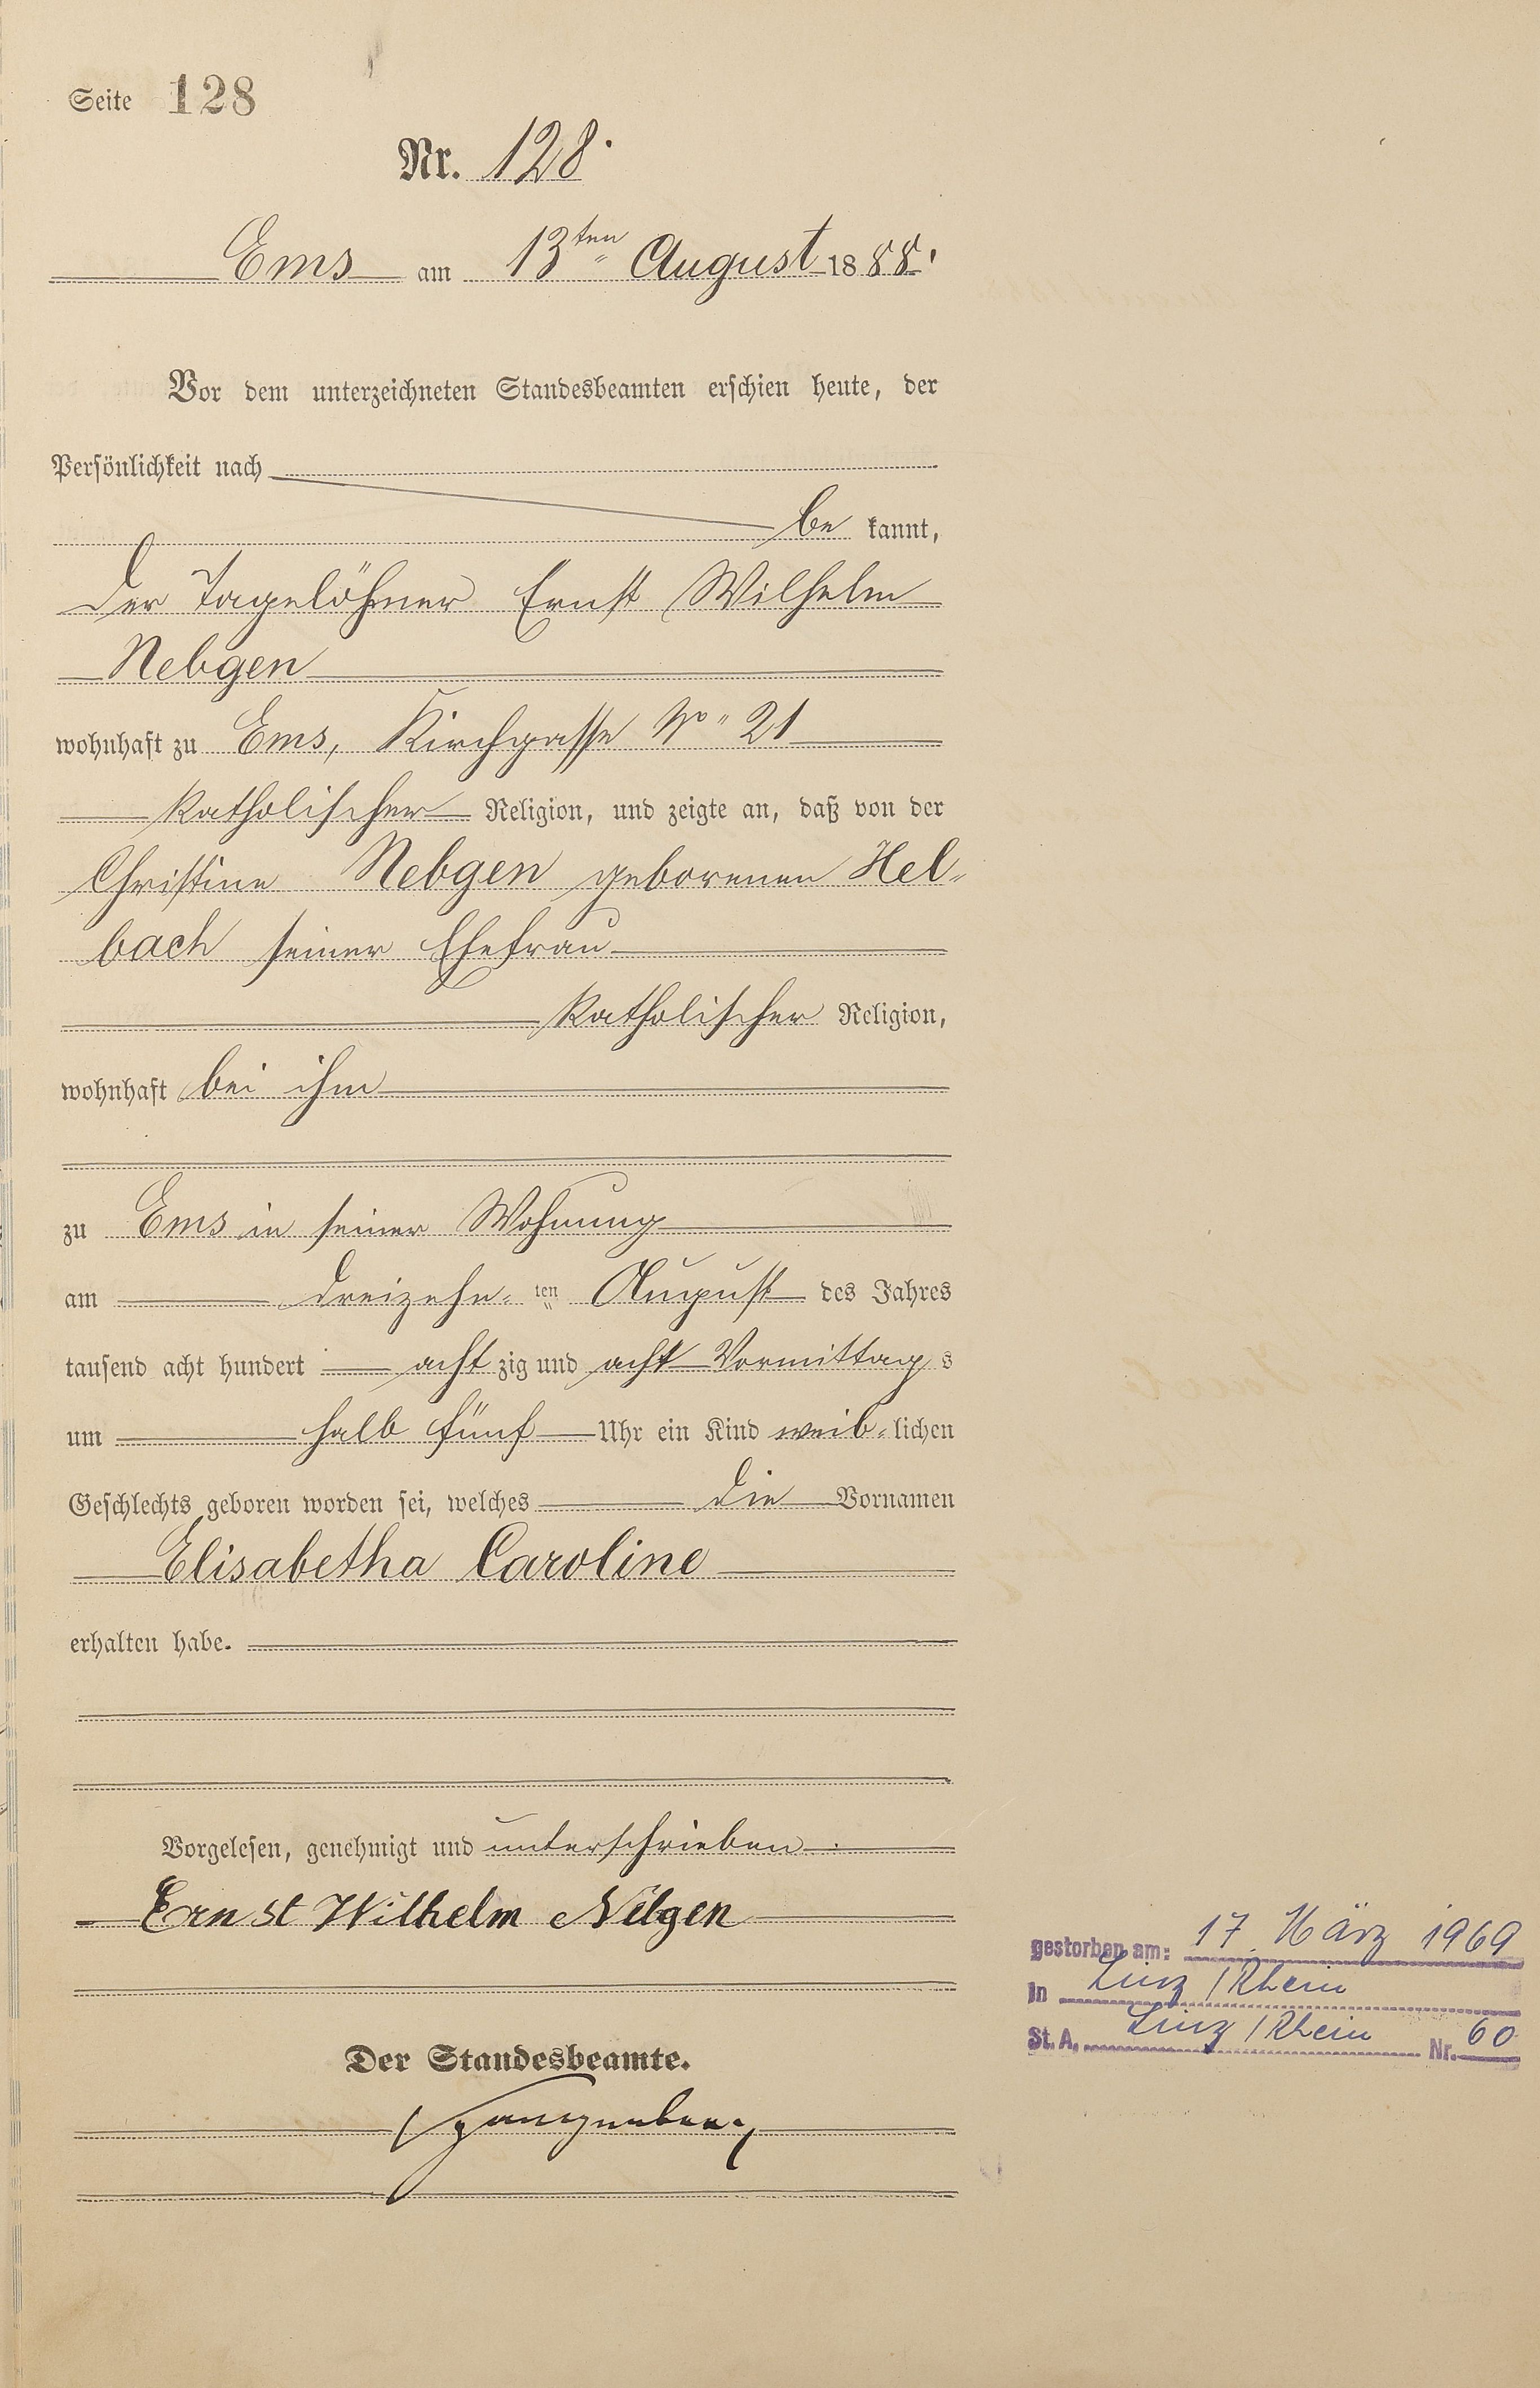 Seite 128
Nr. 128.
Ems am 13ten August 1888.
Vor dem unterzeichneten Standesbeamten erschien heute, der
Persönlichkeit nach
be kannt,
der Tagelöhner Ernst Wilhelm
Nebgen
wohnhaft zu Ems, Kirchgasse No 21
katholischer Religion, und zeigte an, daß von der
Christine Nebgen geborenen Hel-
bach seiner Ehefrau
katholischer Religion,
wohnhaft bei ihm
zu Ems in seiner Wohnung
am dreizehn-ten August des Jahres
tausend acht hundert acht zig und acht Vormittag s
um halb fünf Uhr ein Kind weib-lichen
Geschlechts geboren worden sei, welches die Vornamen
Elisabetha Caroline
erhalten habe.
Vorgelesen, genehmigt und unterschrieben.
Ernst Wilhelm Nebgen
Der Standesbeamte.
gestorben am: 17. März 1969
In Linz / Rhein
St. A. Linz / Rhein Nr. 60